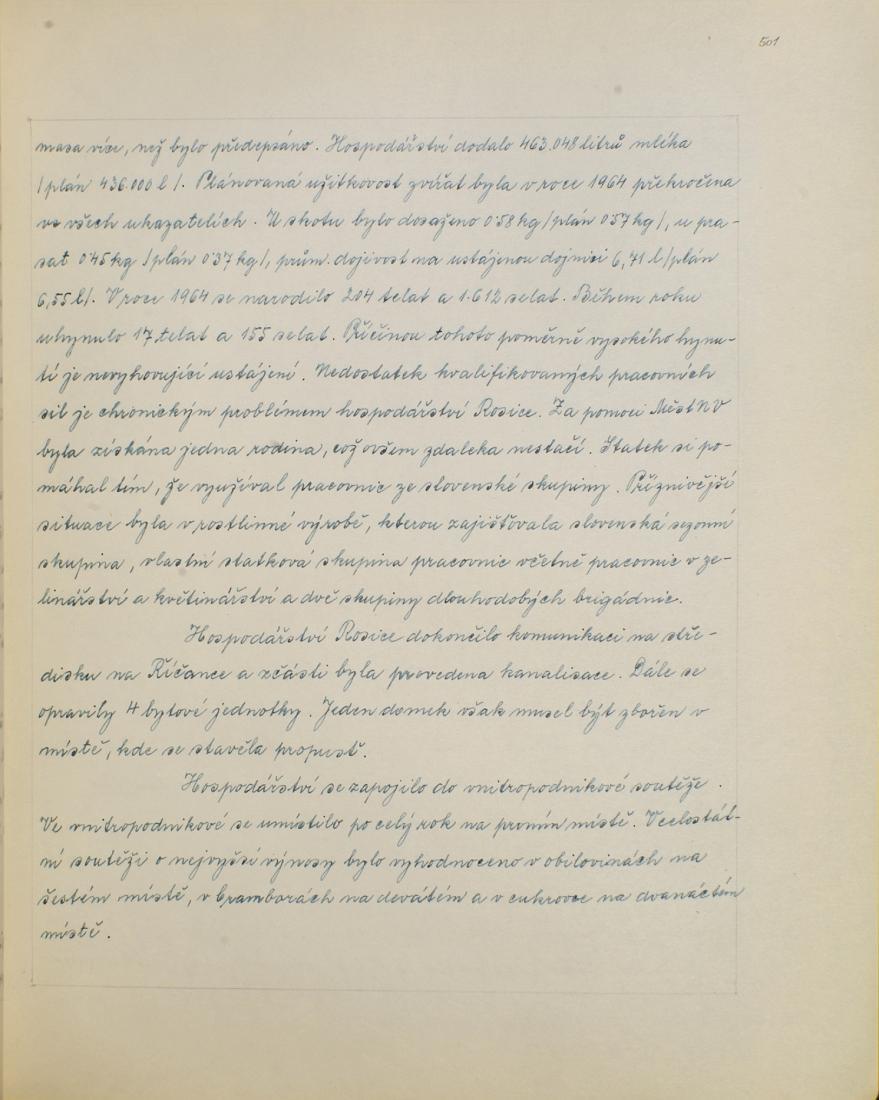 501
masa více, než bylo předepsáno. Hospodářství dodalo 463.048 litrů mléka
/plán 436.000 l/. Plánovaná užitkovost zvířat byla v roce 1964 překročena
ve všech ukazatelích. U skotu bylo dosaženo 0'58 kg /plán 0'57 kg/, u pra-
sat 0'45 kg /plán 0'37 kg/, prům. dojivost na ustájenou dojnici 6,71 l /plán
6,55 l/. V roce 1964 se narodilo 204 telat a 1.612 selat. Během roku
uhynulo 17 telat a 155 selat. Příčinou tohoto poměrně vysokého hynu-
tí je nevyhovující ustájení. Nedostatek kvalifikovaných pracovních
sil je chronickým problémem hospodářství Rosice. Za pomoci MěstNV
byla získána jedna rodina, což ovšem zdaleka nestačí. Statek si po-
máhal tím, že využíval pracovnic ze slovenské skupiny. Příznivější
situace byla v rostlinné výrobě, kterou zajišťovala slovenská sezonní
skupina, vlastní statková skupina pracovnic včetně pracovnic v ze-
linářství a květinářství a dvě skupiny dlouhodobých brigádnic.
Hospodářství Rosice dokončilo komunikaci na stře-
disku na Říčance a zčásti byla provedena kanalisace. Dále se
opravily 4 bytové jednotky. Jeden domek však musel být zbořen v
místě, kde se stavěla propusť.
Hospodářství se zapojilo do vnitropodnikové soutěže.
Ve vnitropodnikové se umístilo po celý rok na prvním místě. V celostát-
ní soutěži o nejvyšší výnosy bylo vyhodnoceno v obilovinách na
šestém místě, v bramborách na devátém a v cukrovce na dvanáctém
místě.